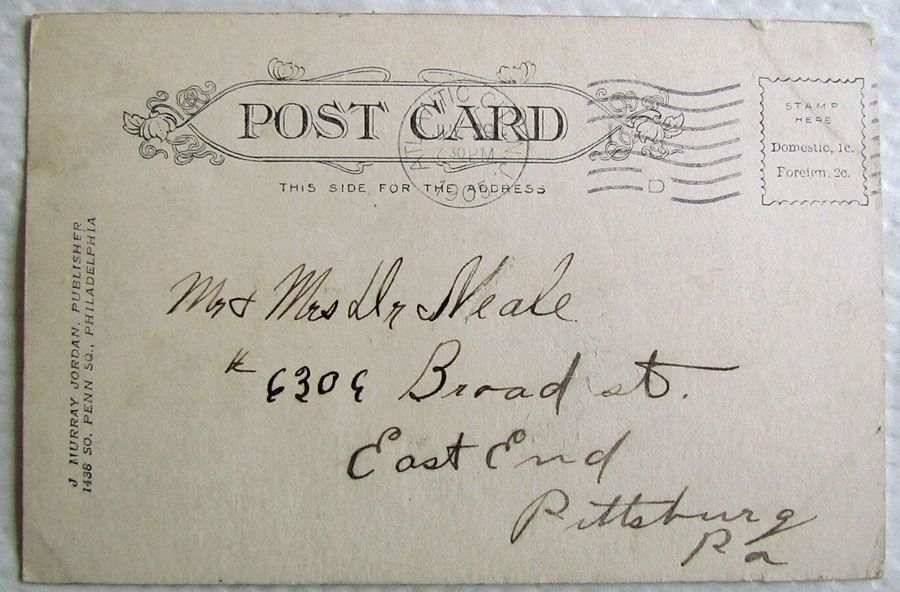 POST CARD
THIS SIDE FOR THE ADDRESS
ATLANTIC
7 30 PM
1905
D
STAMP
HERE
Domestic, 1c.
Foreign, 2c.
J. MURRAY JORDAN, PUBLISHER
1438 SO. PENN SQ., PHILADELPHIA
Mr & Mrs Dr Neale
6309 Broad st.
East End
Pittsburg
Pa